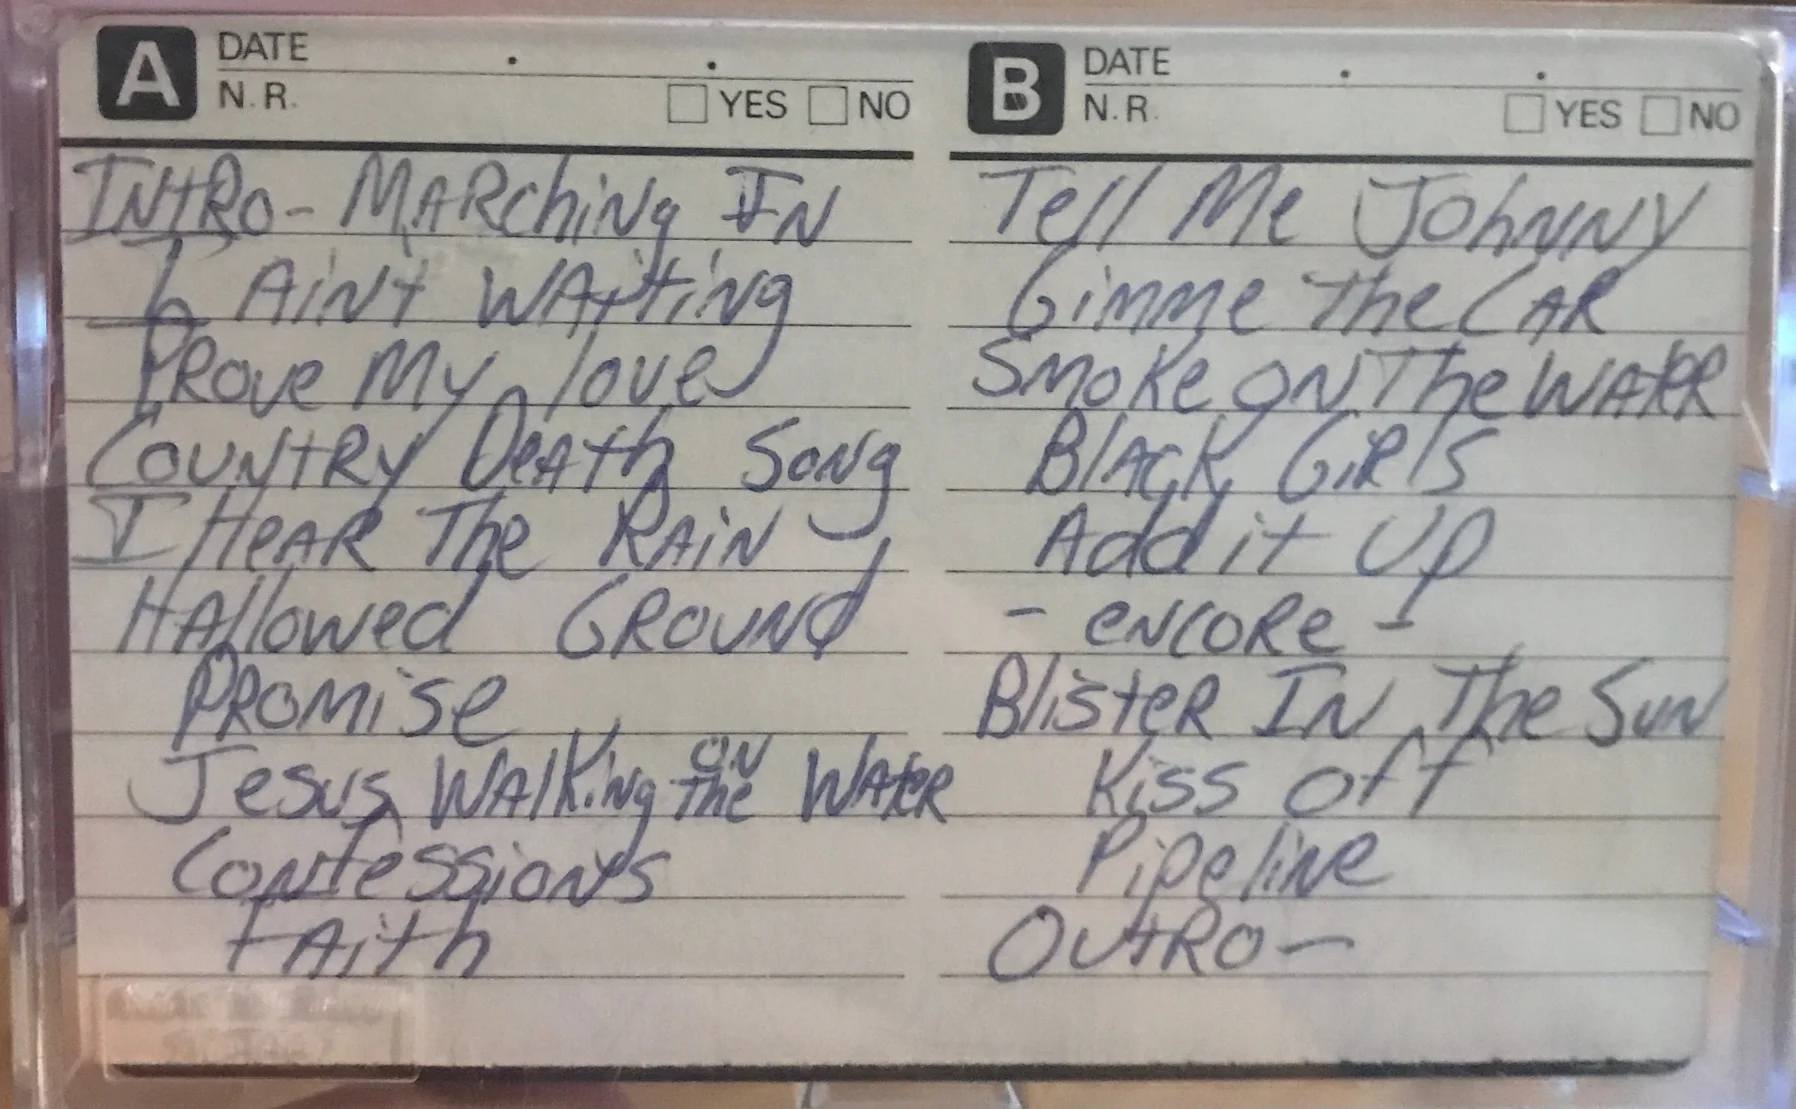 A DATE . .
N.R. YES NO
INtRo- MARchiNg IN
I AiNt WAitiNg
PRove My love
CouNtRy DeAth SoNg
I HeAR The RAiN
HAllowed GRouNd
PRoMise
Jesus WAlKiNg oN the WAteR
CoNfessioNs
FAith
B DATE . .
N.R. YES NO
Tell Me JohNNy
Gimme the CAR
SMoKe oN The WAteR
BlAcK GiRls
Add it Up
- eNcoRe -
BlisteR IN The SuN
Kiss off
PipeliNe
OutRo-